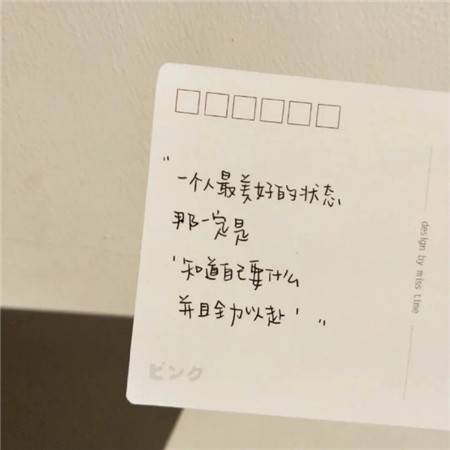 “一个人最美好的状态
那一定是
‘知道自己要什么
并且全力以赴’”
ピンク
design by miss time